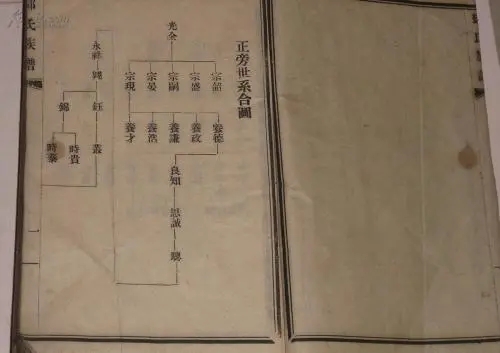 正旁世系合圖
光全
宗韶
宗盛
宗嗣
宗晏
宗現
養德
養政
養謙
養浩
養才
良知
思誠
聰
永祥
鈺
叢
錦
時貴
時泰
氏族譜